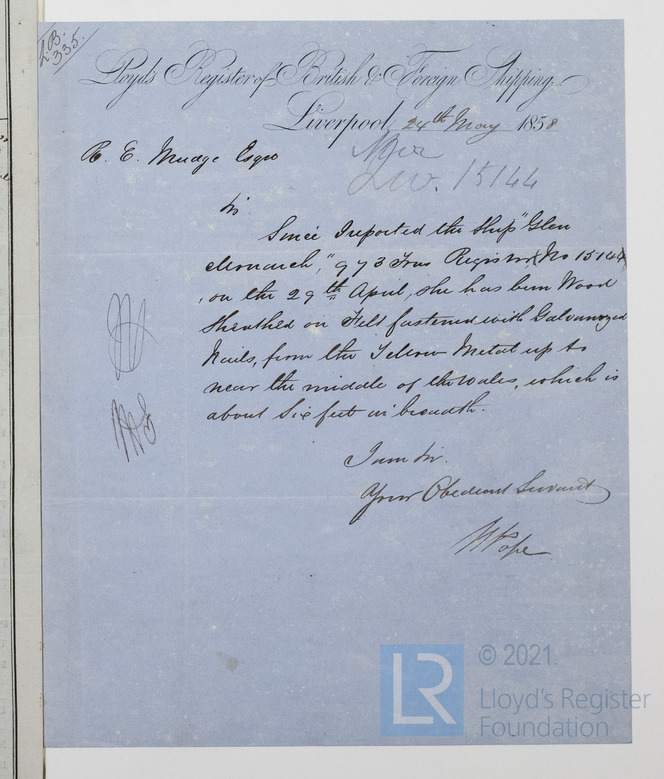 L.B.
335.
Lloyd's Register of British & Foreign Shipping.
Liverpool, 24th May 1858
R. E. Mudge Esqre
Liv. 15144
Sir
Since I reported the Ship "Glen
Monarch," 973 Tons Register (No 15144)
, on the 29th April, she has been Wood
Sheathed on Felt fastened with Galvanized
Nails, from the Yellow Metal up to
near the middle of the Wales, which is
about Six feet in breadth.
I am Sir
Your Obedient Servant
W Pope
LR
© 2021.
Lloyd's Register
Foundation